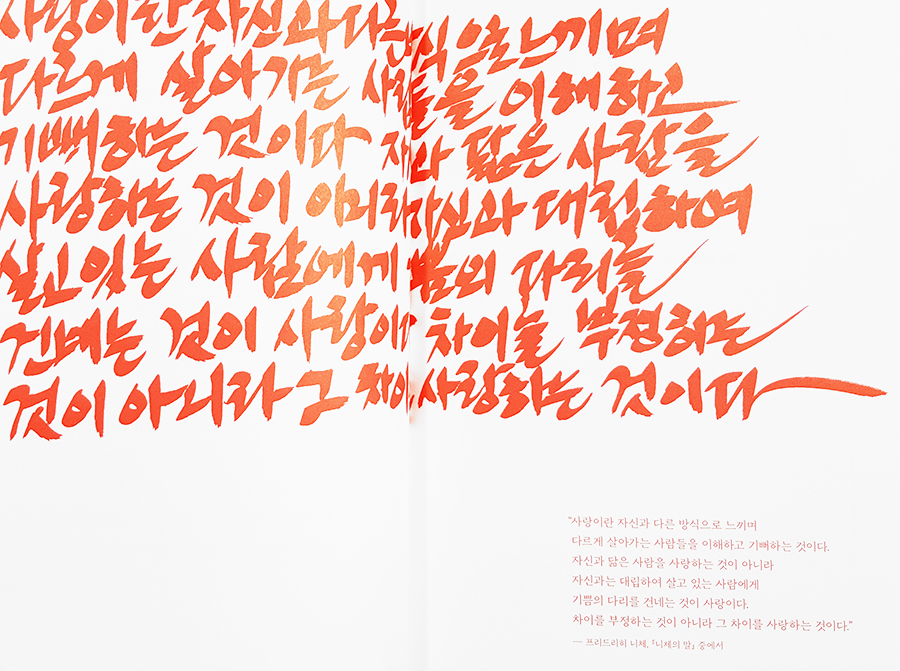 사랑이란 자신과 다른 방식으로 느끼며
다르게 살아가는 사람들을 이해하고
기뻐하는 것이다 자신과 닮은 사람을
사랑하는 것이 아니라 자신과 대립하여
살고 있는 사람에게 기쁨의 다리를
건네는 것이 사랑이다 차이를 부정하는
것이 아니라 그 차이를 사랑하는 것이다
"사랑이란 자신과 다른 방식으로 느끼며
다르게 살아가는 사람들을 이해하고 기뻐하는 것이다.
자신과 닮은 사람을 사랑하는 것이 아니라
자신과는 대립하여 살고 있는 사람에게
기쁨의 다리를 건네는 것이 사랑이다.
차이를 부정하는 것이 아니라 그 차이를 사랑하는 것이다."
— 프리드리히 니체, 「니체의 말」 중에서